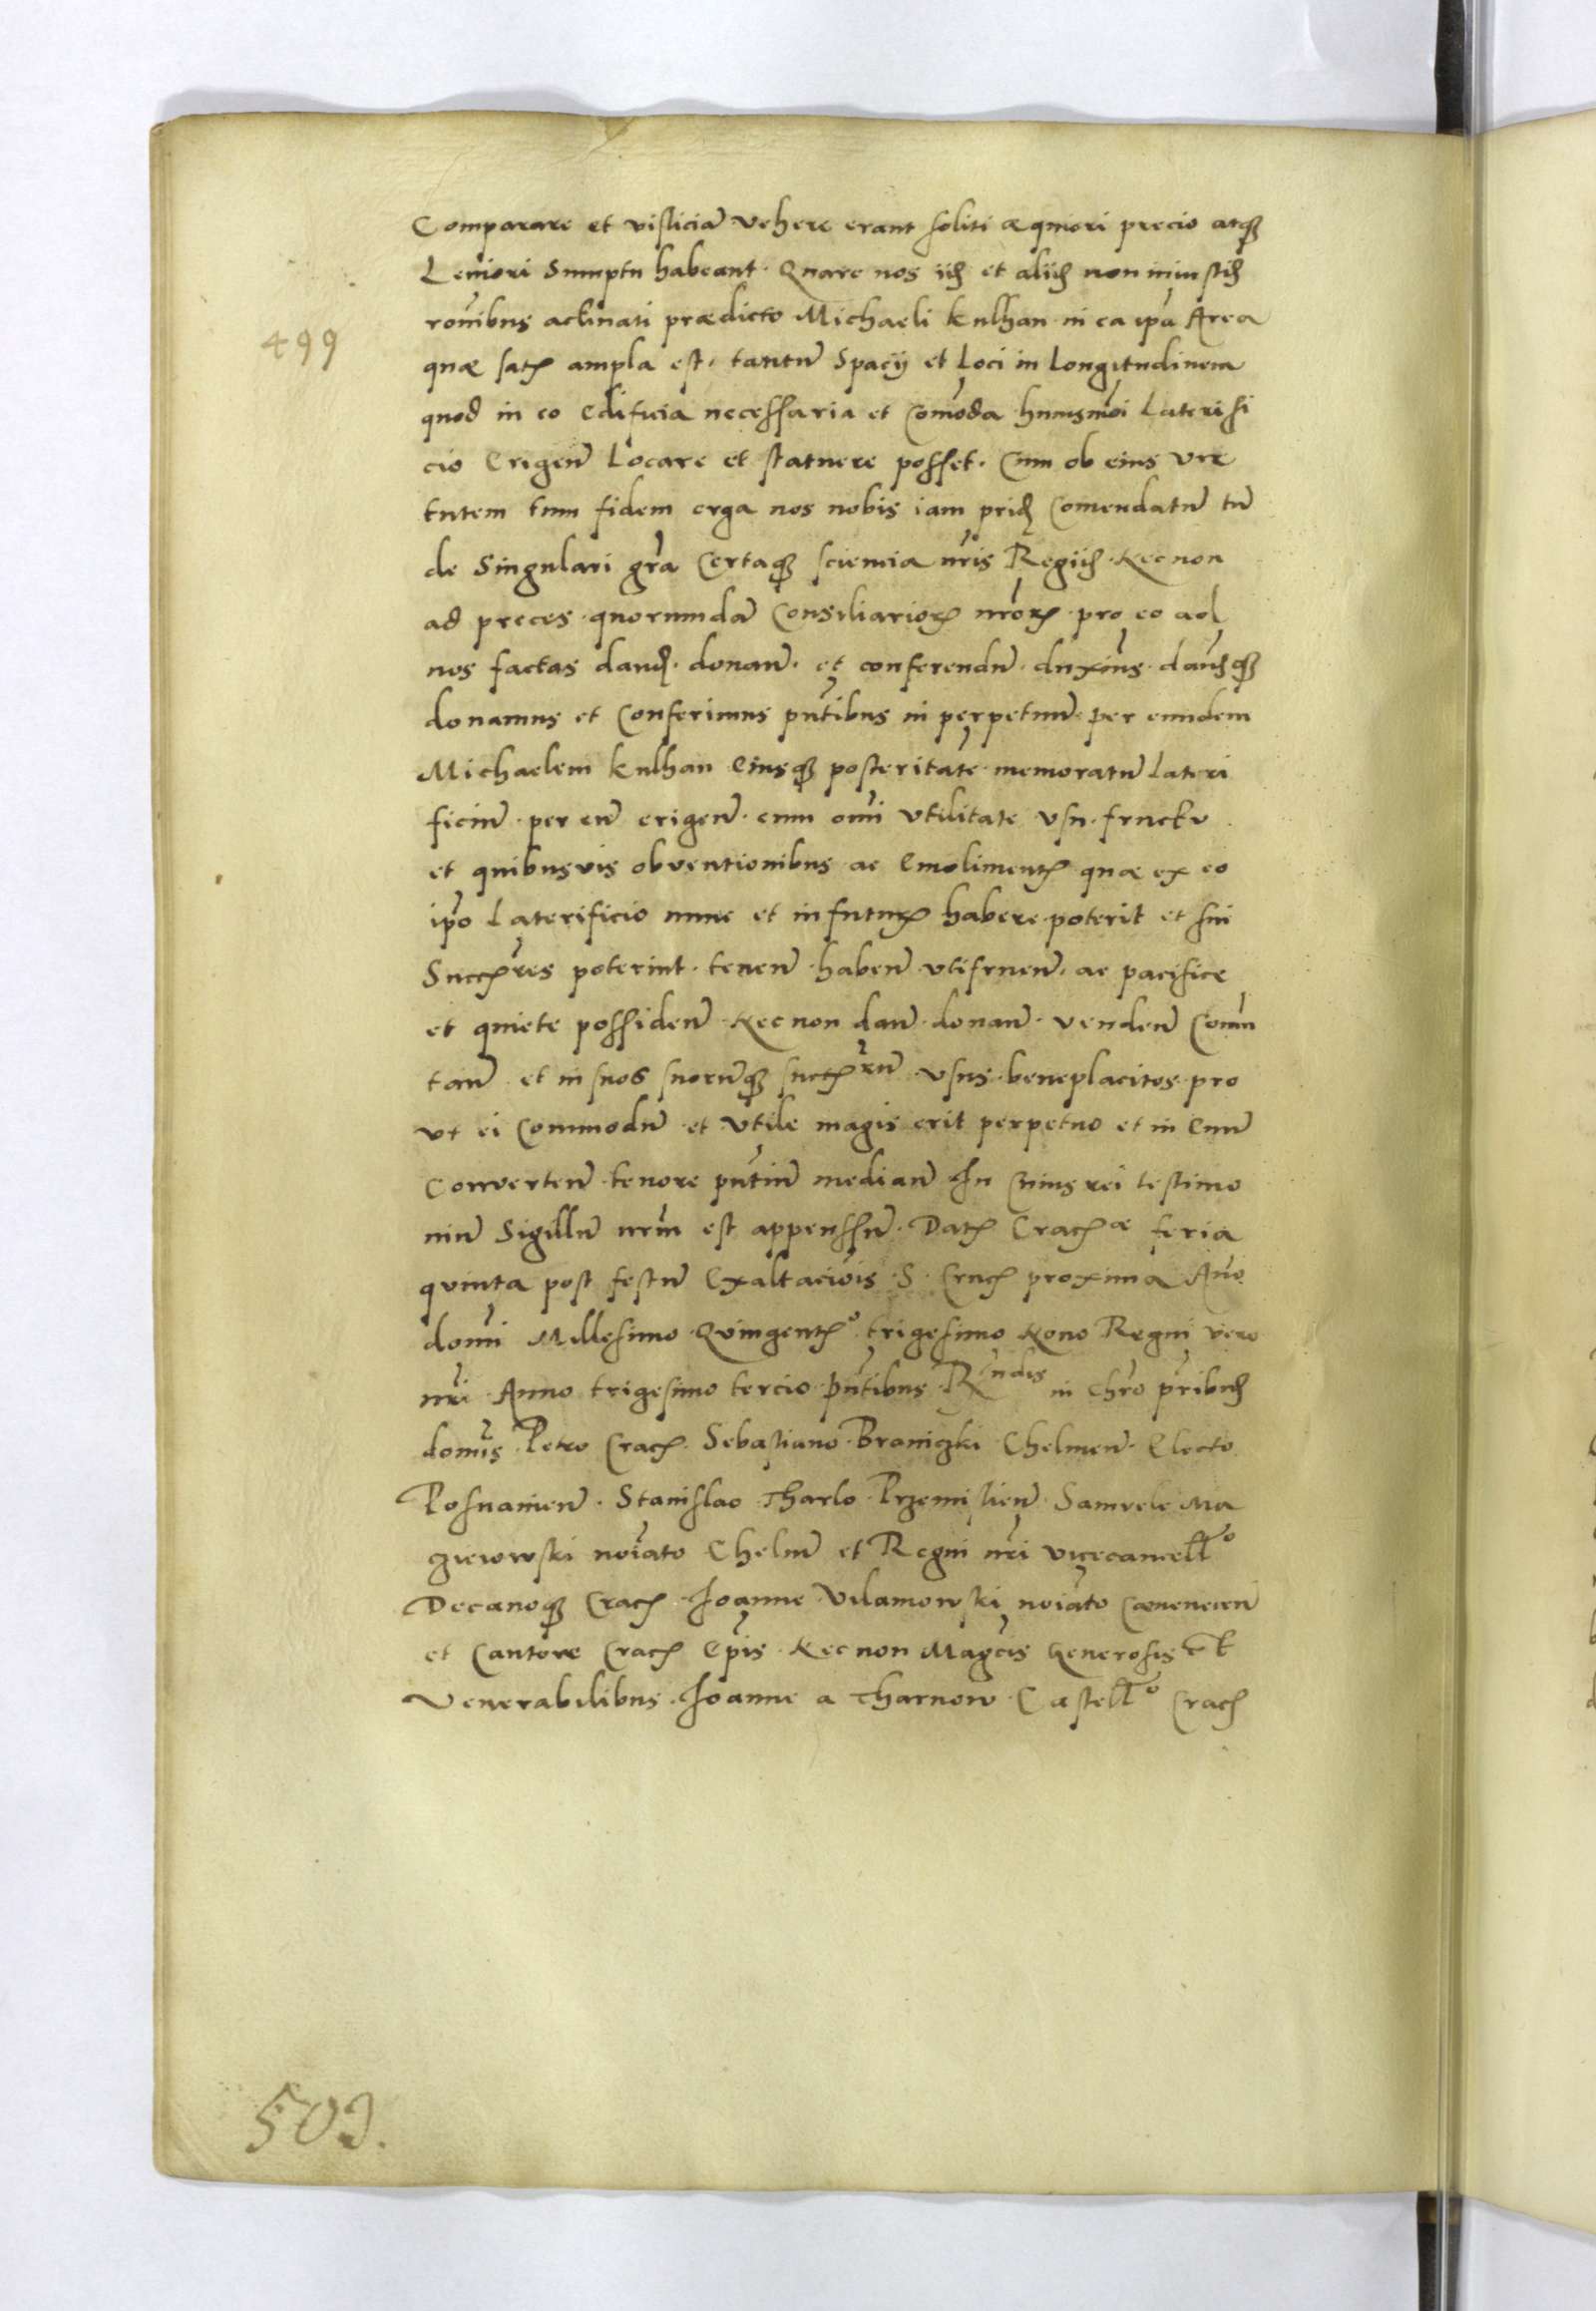 Comparare et visliciā vehere erant soliti æquiori precio atqȝ
Leuiori Sumptu habeant. Quare nos iis et aliis non iniustis
ronibus aclinati prædicto Michaeli kulhan in ea ipa Area
499
quæ satis ampla est. tantū Spacij et Loci in Longitudinem
quod in eo edificia necessaria et Comoda huiusmoi Laterifi
cio Erigen̄ Locare et statuere posset. Cum ob eius vir
tutem tum fidem erga nos nobis iam prid Comendatū tū
de Singulari gra Certaqȝ sciencia nris Regiis. Necnon
ad preces quorumdā Consiliarioꝝ nroꝝ pro eo ad
nos factas dand. donan̄. et conferendū duximus. damusqȝ
donamus et Conferimus pntibus in perpetuū per eundem
Michaelem kulhan Eiusqȝ posteritate memoratū Lateri
ficiū per eū erigen̄. cum omi vtilitate vsu. fructu
et quibusuis obventionibus ac Emolimentis quæ ex eo
ipo Laterificio nunc et in futuꝝ habere poterit et sui
Succres poterint. tenen̄ haben̄ vtifruen̄. ac pacifice
et quiete possiden̄ Necnon dan̄ donan̄. venden̄ Comu
tan̄ et in suos suorūqȝ succrū vsus beneplacitos pro
vt ei Commodū et vtile magis erit perpetuo et in Euū
Converten̄ tenore pntiū median̄ In Cuius rei testimo
niū Sigillū nrm est appenssū. Datȝ Cracȝæ feria
quinta post festū Exaltacionis S. Crucȝ proxima Ano
domi Millesimo Quingentȝo trigesimo Nono Regni vero
nri Anno trigesimo tercio pntibus Rndis in Chro pribus
domis Petro Cracȝ. Sebastiano Braniczki Chelmen̄. Electo
Posnanien̄. Stanislao Tharlo Przemislien̄ Samuele Ma
ziewwski noiato Chelm̄ et Regni nri vicecancell̄o
Decanoqȝ Cracȝ Joanne Vilamowski noiato Cameneien̄
et Cantore Cracȝ Epis. Necnon Magcis Generosis et
Venerabilibus. Joanne a Tharnow Castell̄o Cracȝ
503.